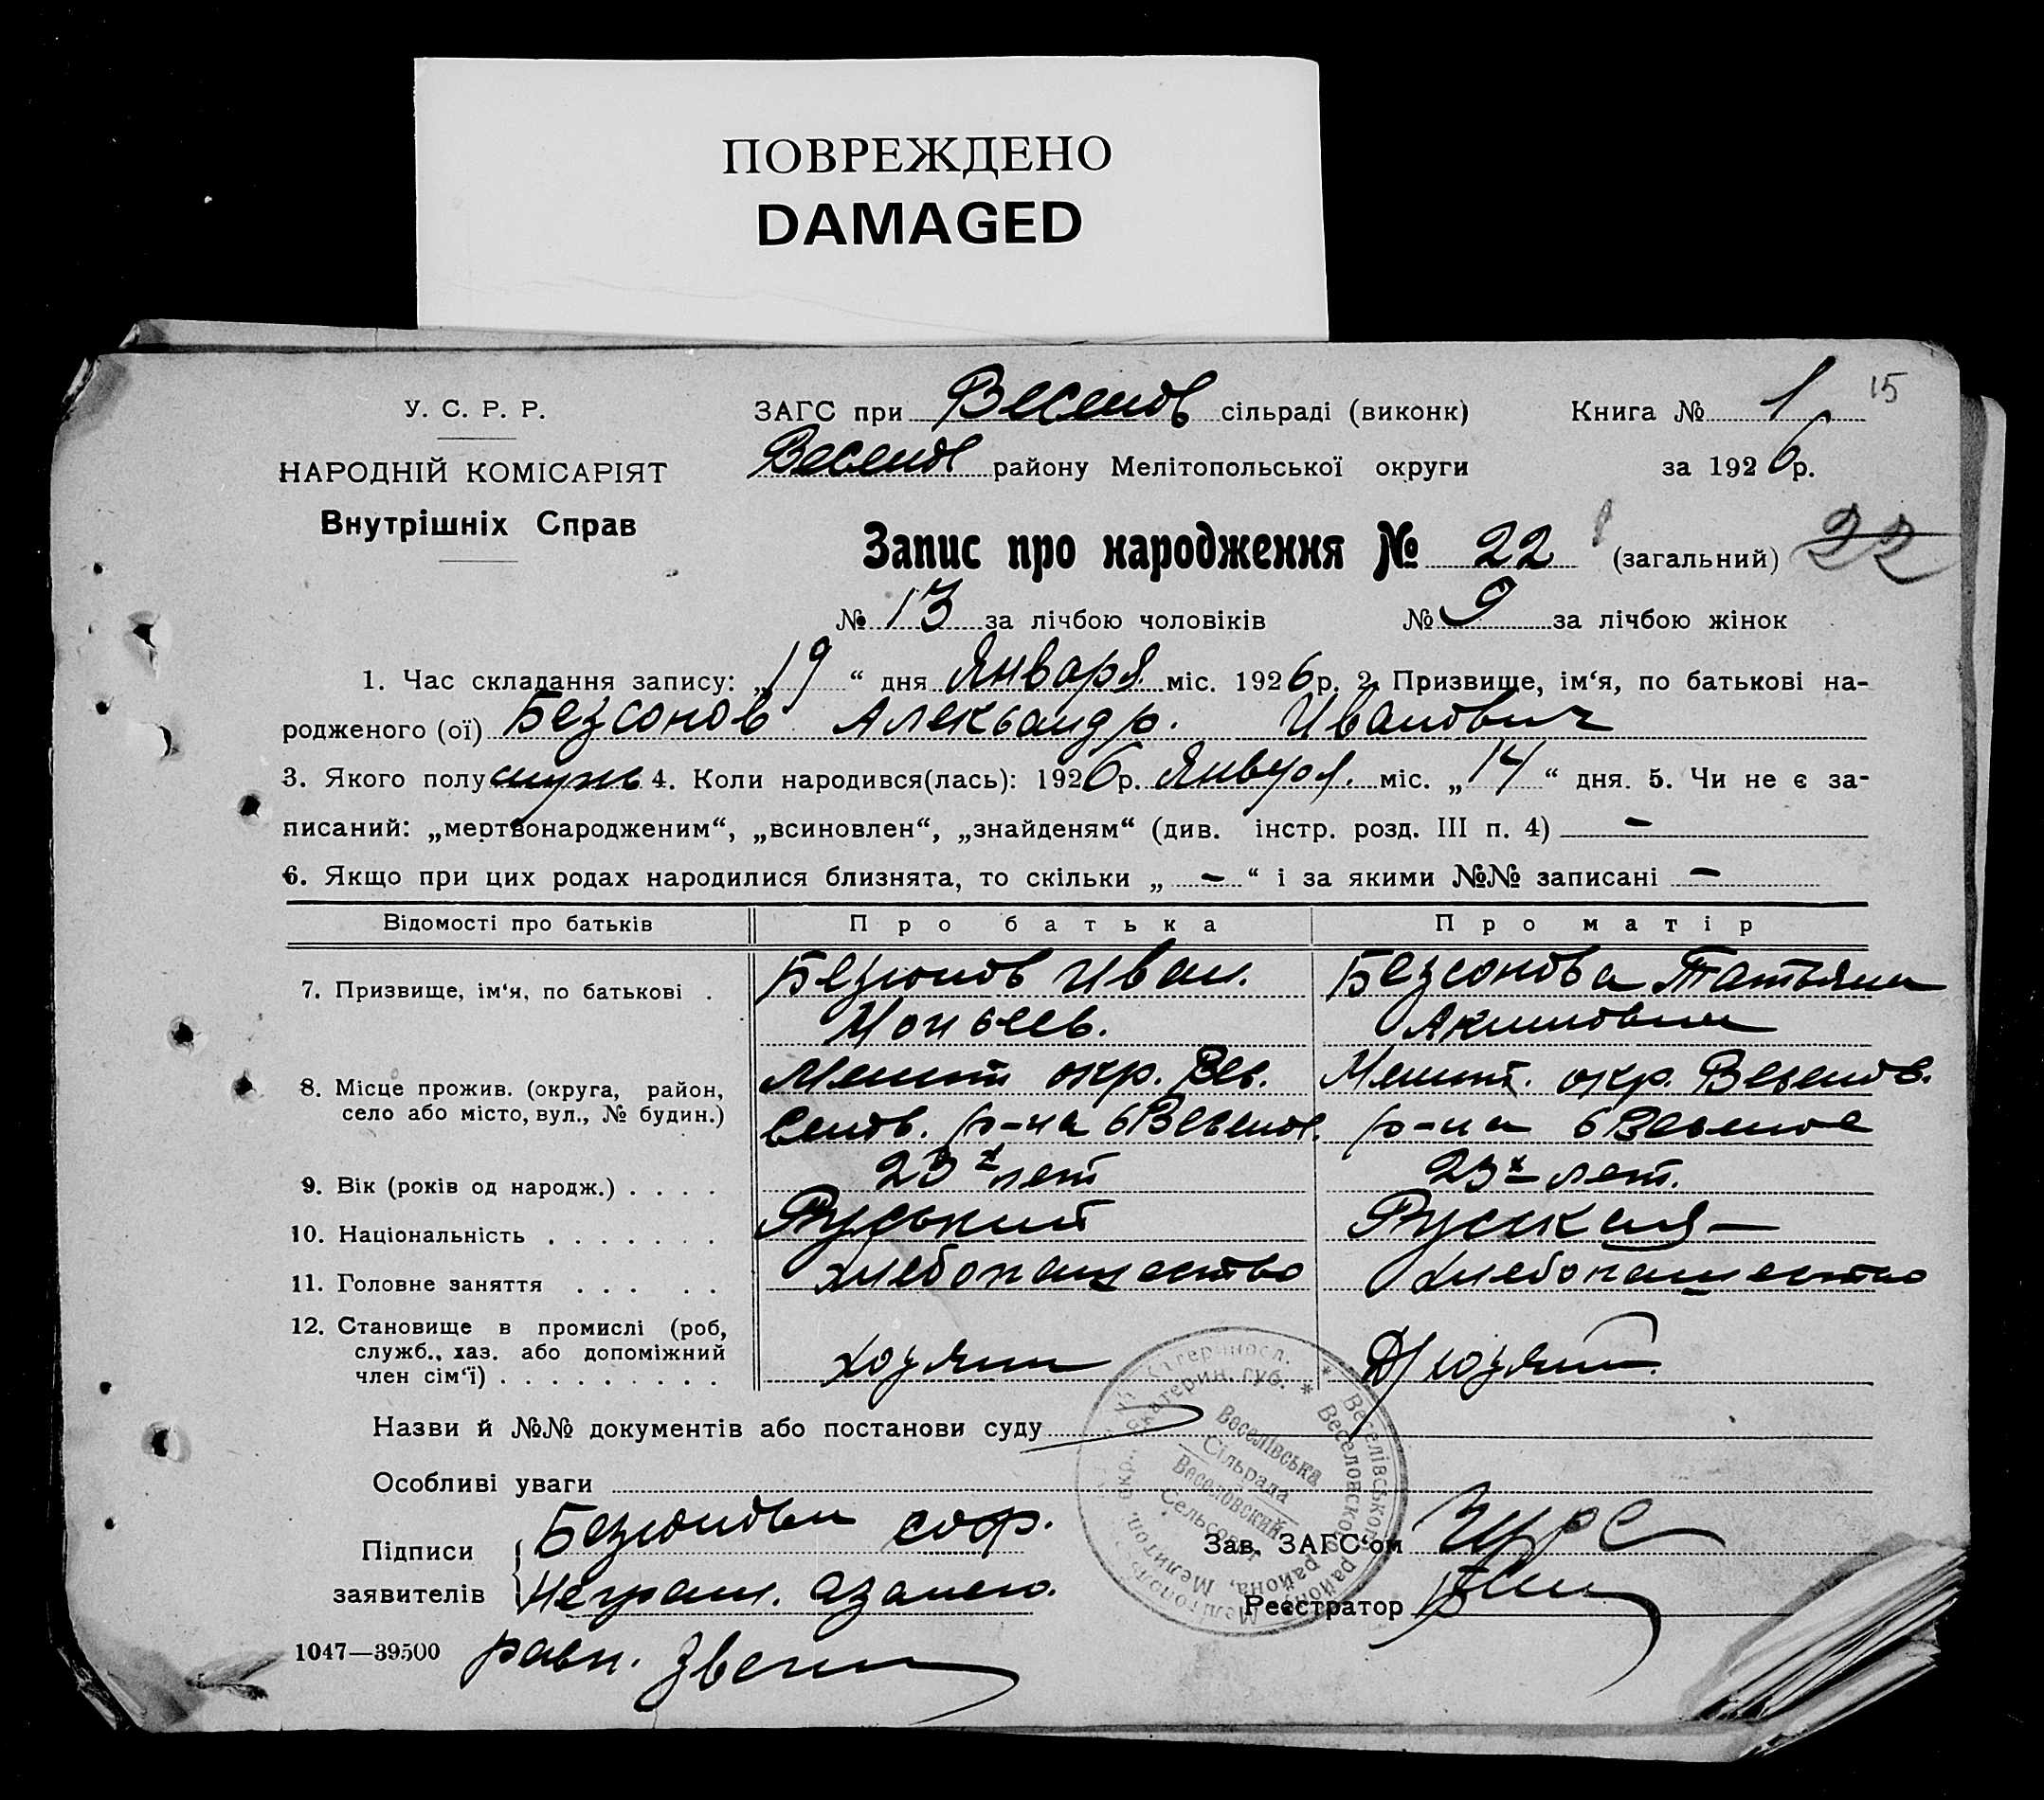 ПОВРЕЖДЕНО
DAMAGED
15
У. С. Р. Р.
НАРОДНІЙ КОМІСАРІЯТ
Внутрішніх Справ
ЗАГС при Веселов сільраді (виконк) Книга № 1
Веселов району Мелітопольської округи за 1926 р.
Запис про народження № 22 (загальний) 22
№ 13 за лічбою чоловіків № 9 за лічбою жінок
1. Час складання запису: „19“ дня Января міс. 1926 р. 2. Призвище, ім‘я, по батькові на-
родженого (ої) Безсонов Александр. Иванович
3. Якого полу мужс 4. Коли народився(лась): 1926 р. Января. міс. „14“ дня. 5. Чи не є за-
писаний: „мертвонародженим“, „всиновлен“, „знайденям“ (див. інстр. розд. III п. 4) –
6. Якщо при цих родах народилися близнята, то скільки „ – “ і за якими №№ записані –
Відомості про батьків Про батька Про матір
7. Призвище, ім‘я, по батькові . Безсонов Иван. Безсонова Татьяна
Акимовна
8. Місце прожив. (округа, район, Мелит окр. Вес. Мелит. окр. Веселов.
село або місто, вул., № будин.) р-на с Веселое р-на с Веселое
9. Вік (років од народж.) . . . . 23х лет 23х лет.
10. Національність . . . . . . . Руський Русская –
11. Головне заняття . . . . . хлебопашество хлебопашество
12. Становище в промислі (роб,
служб., хаз. або допоміжний
член сім‘ї) . . . . . . . . . хозяин
Назви й №№ документів або постанови суду
Особливі уваги
Підписи
заявителів
Безсонов
Неграм.
Зав. ЗАГС‘ом
Реєстратор
Веселівська
Сільрада
Веселовский
Сельсовет
1047—39500